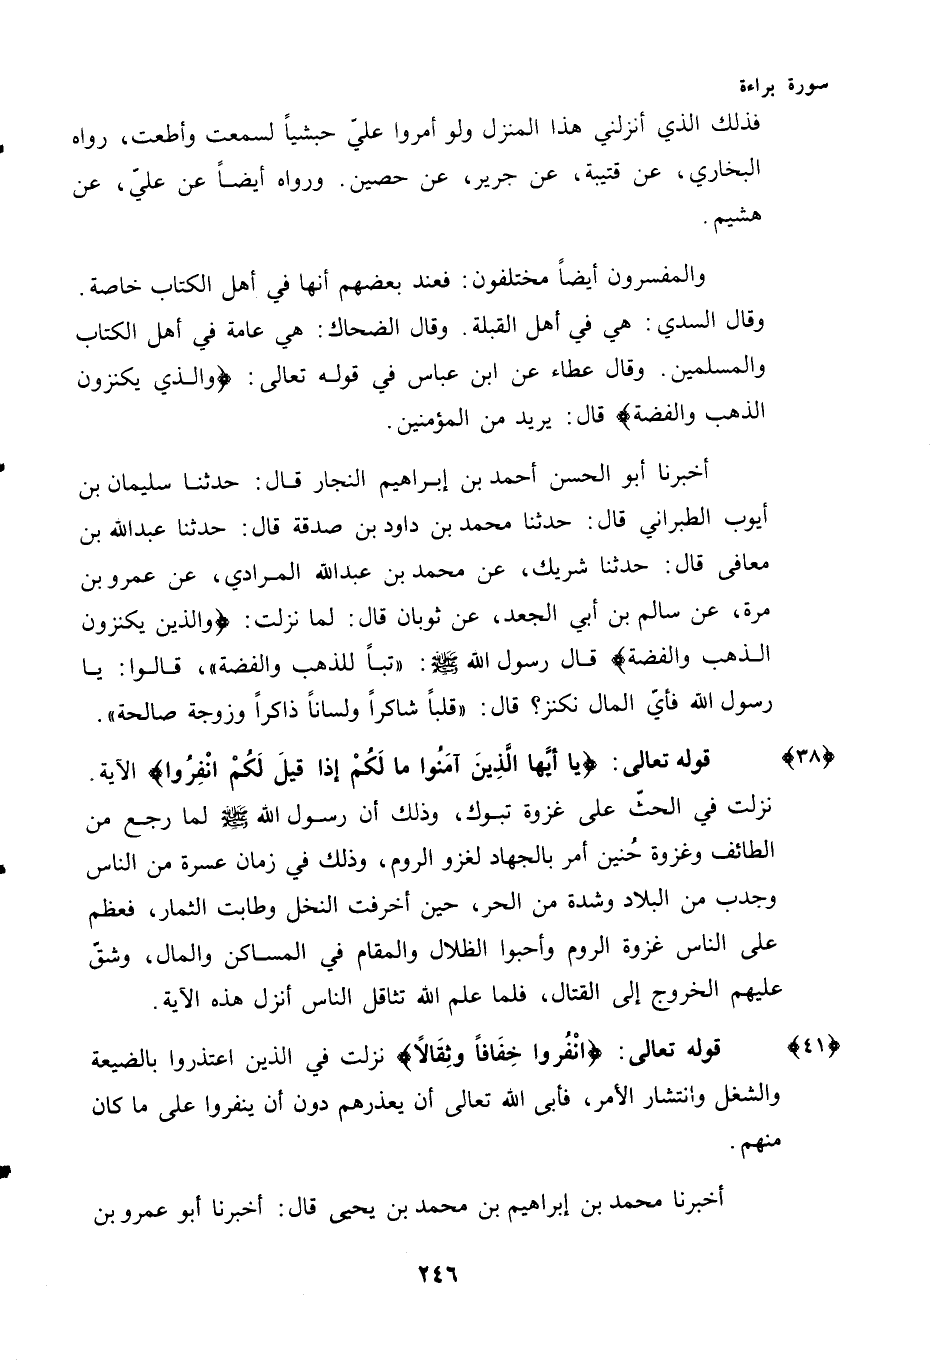 سورة براءة
فذلك الذي أنزلني هذا المنزل ولو أمروا عليّ حبشياً لسمعت وأطعت، رواه
البخاري، عن قتيبة، عن جرير، عن حصين. ورواه أيضاً عن عليّ، عن
هشيم.
والمفسرون أيضاً مختلفون: فعند بعضهم أنها في أهل الكتاب خاصة.
وقال السدي: هي في أهل القبلة. وقال الضحاك: هي عامة في أهل الكتاب
والمسلمين. وقال عطاء عن ابن عباس في قوله تعالى: ﴿والذي يكنزون
الذهب والفضة﴾ قال: يريد من المؤمنين.
أخبرنا أبو الحسن أحمد بن إبراهيم النجار قال: حدثنا سليمان بن
أيوب الطبراني قال: حدثنا محمد بن داود بن صدقة قال: حدثنا عبدالله بن
معافى قال: حدثنا شريك، عن محمد بن عبدالله المرادي، عن عمرو بن
مرة، عن سالم بن أبي الجعد، عن ثوبان قال: لما نزلت: ﴿والذين يكنزون
الذهب والفضة﴾ قال رسول الله ﷺ: «تباً للذهب والفضة»، قالوا: يا
رسول الله فأيّ المال نكنز؟ قال: «قلباً شاكراً ولساناً ذاكراً وزوجة صالحة».
﴿٣٨﴾ قوله تعالى: ﴿يا أيُّها الَّذِينَ آمَنُوا ما لَكُمْ إذا قيلَ لَكُمْ انْفِرُوا﴾ الآية.
نزلت في الحثّ على غزوة تبوك، وذلك أن رسول الله ﷺ لما رجع من
الطائف وغزوة حُنين أمر بالجهاد لغزو الروم، وذلك في زمان عسرة من الناس
وجدب من البلاد وشدة من الحر، حين أخرفت النخل وطابت الثمار، فعظم
على الناس غزوة الروم وأحبوا الظلال والمقام في المساكن والمال، وشقّ
عليهم الخروج إلى القتال، فلما علم الله تثاقل الناس أنزل هذه الآية.
﴿٤١﴾ قوله تعالى: ﴿انْفُروا خِفَافاً وثِقَالًا﴾ نزلت في الذين اعتذروا بالضيعة
والشغل وانتشار الأمر، فأبى الله تعالى أن يعذرهم دون أن ينفروا على ما كان
منهم.
أخبرنا محمد بن إبراهيم بن محمد بن يحيى قال: أخبرنا أبو عمرو بن
٢٤٦